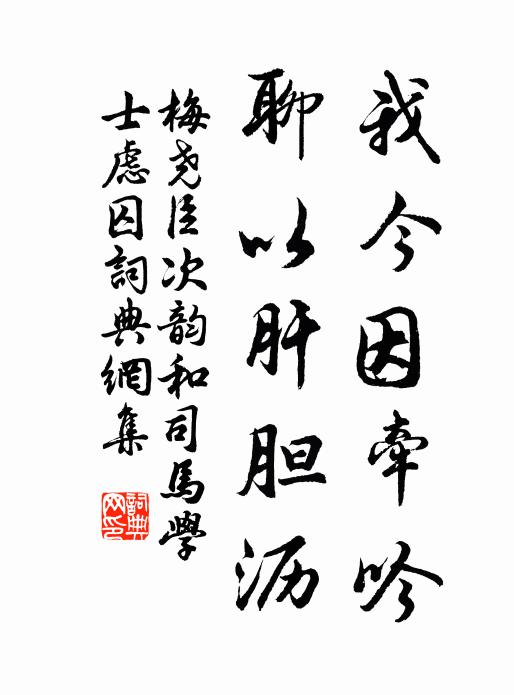 我今因牽吟
聊以肝胆沥
梅尧臣次韵和司馬學
士慮囚詞典網集
詞典
网印